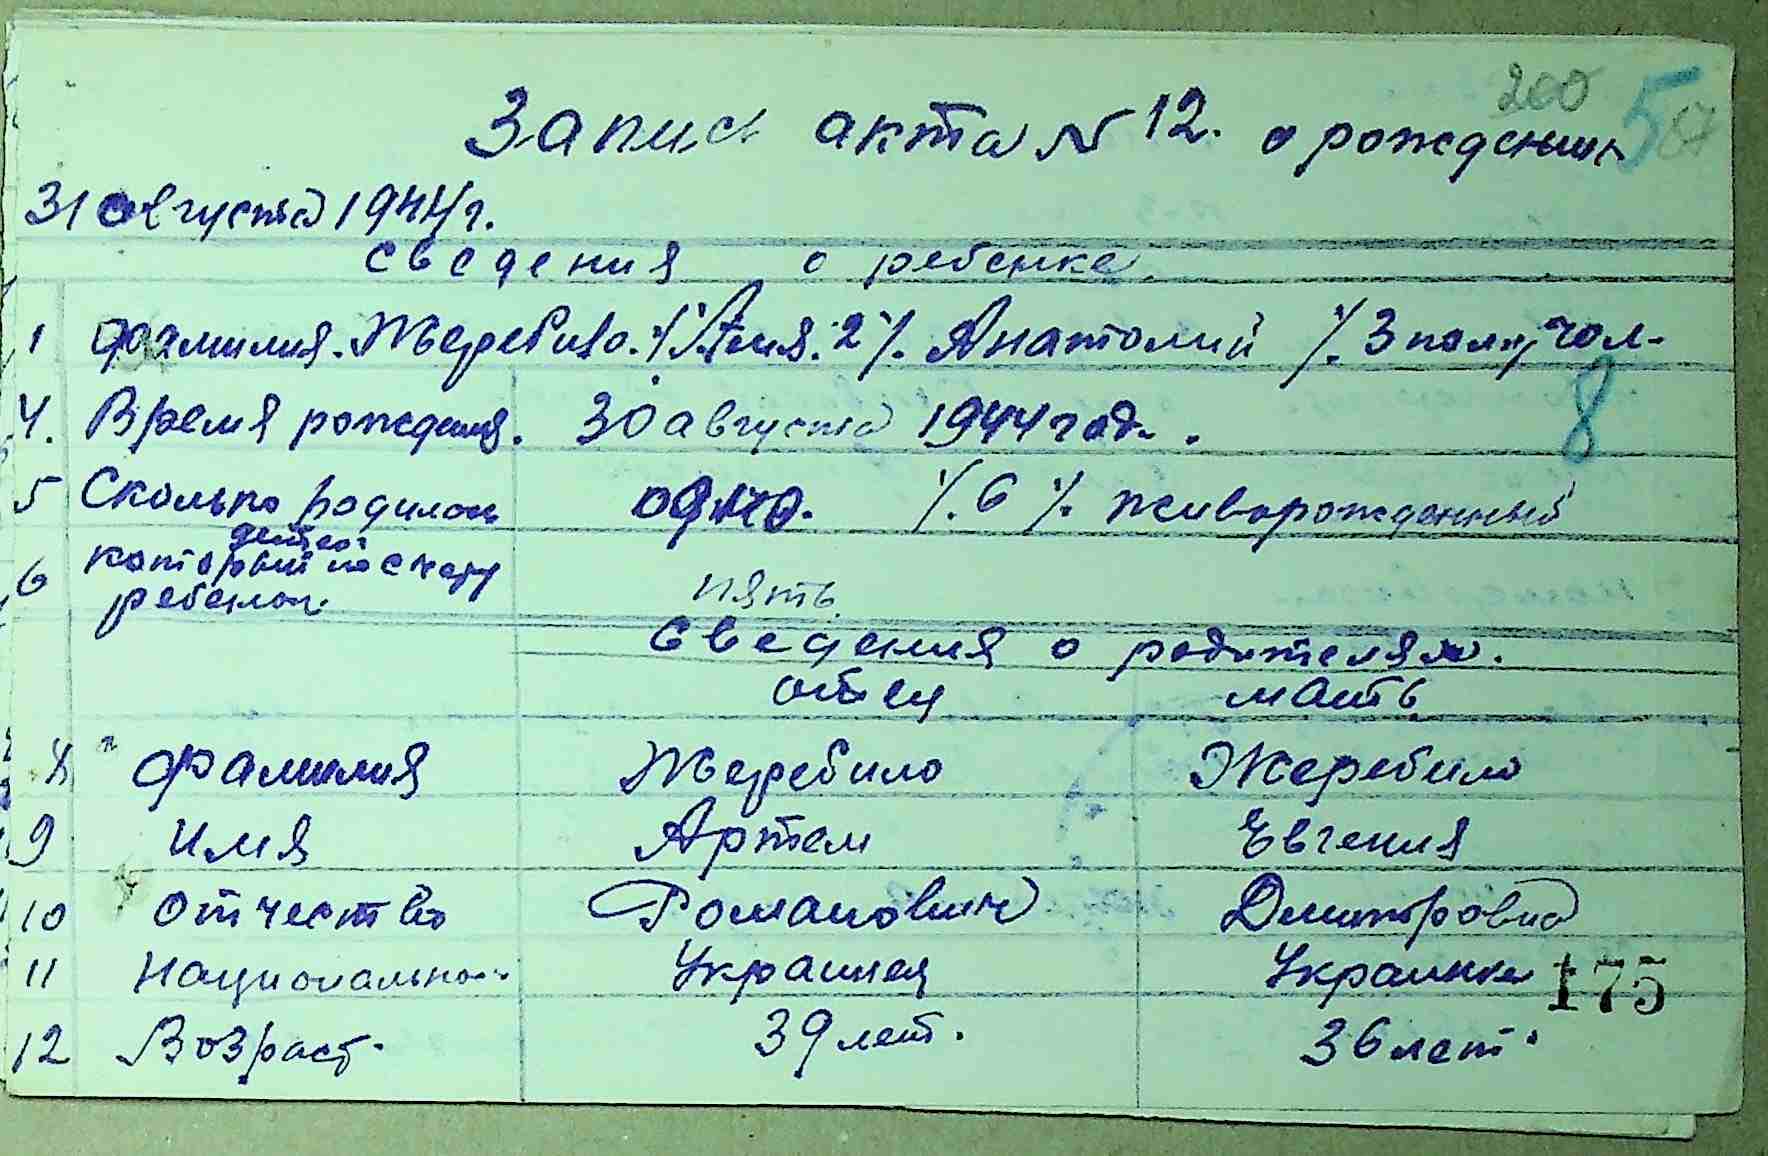 200
Запись акта № 12. о рождении 5
31 августа 1944 г.
Сведения о ребенке.
1 Фамилия. Жеребило. ·/· Имя. 2 ·/· Анатолий ·/· 3 пол муж.
4. Время рождения. 30 августа 1944 год. .
8
5 Сколько родилось детей одно. ·/· 6 ·/· живорожденный
6 который по счету ребенок пять
Сведения о родителях.
отец мать
Фамилия Жеребило Жеребило
9 Имя Артем Евгения
10 Отчество Романович Дмитровна
11 Национальност Украинец Украинка 175
12 Возраст. 39 лет. 36 лет.